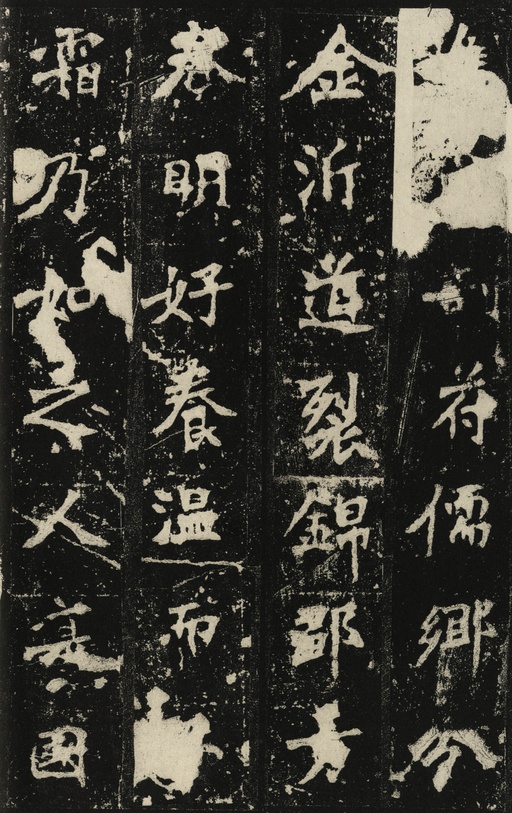 剖符儒鄉分
金沂道裂錦邵方
春明好養温而
霜乃如之人寔國